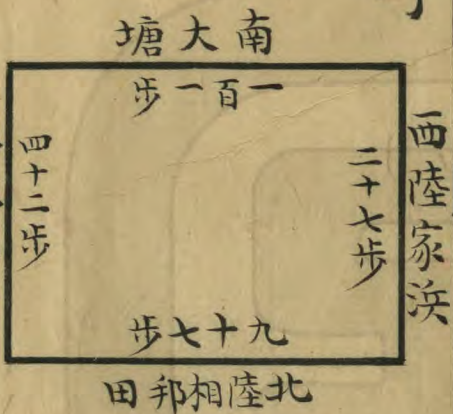 南大塘
一百一步
西陸家浜
二十七步
四十二步
九十七步
北陸相邦田